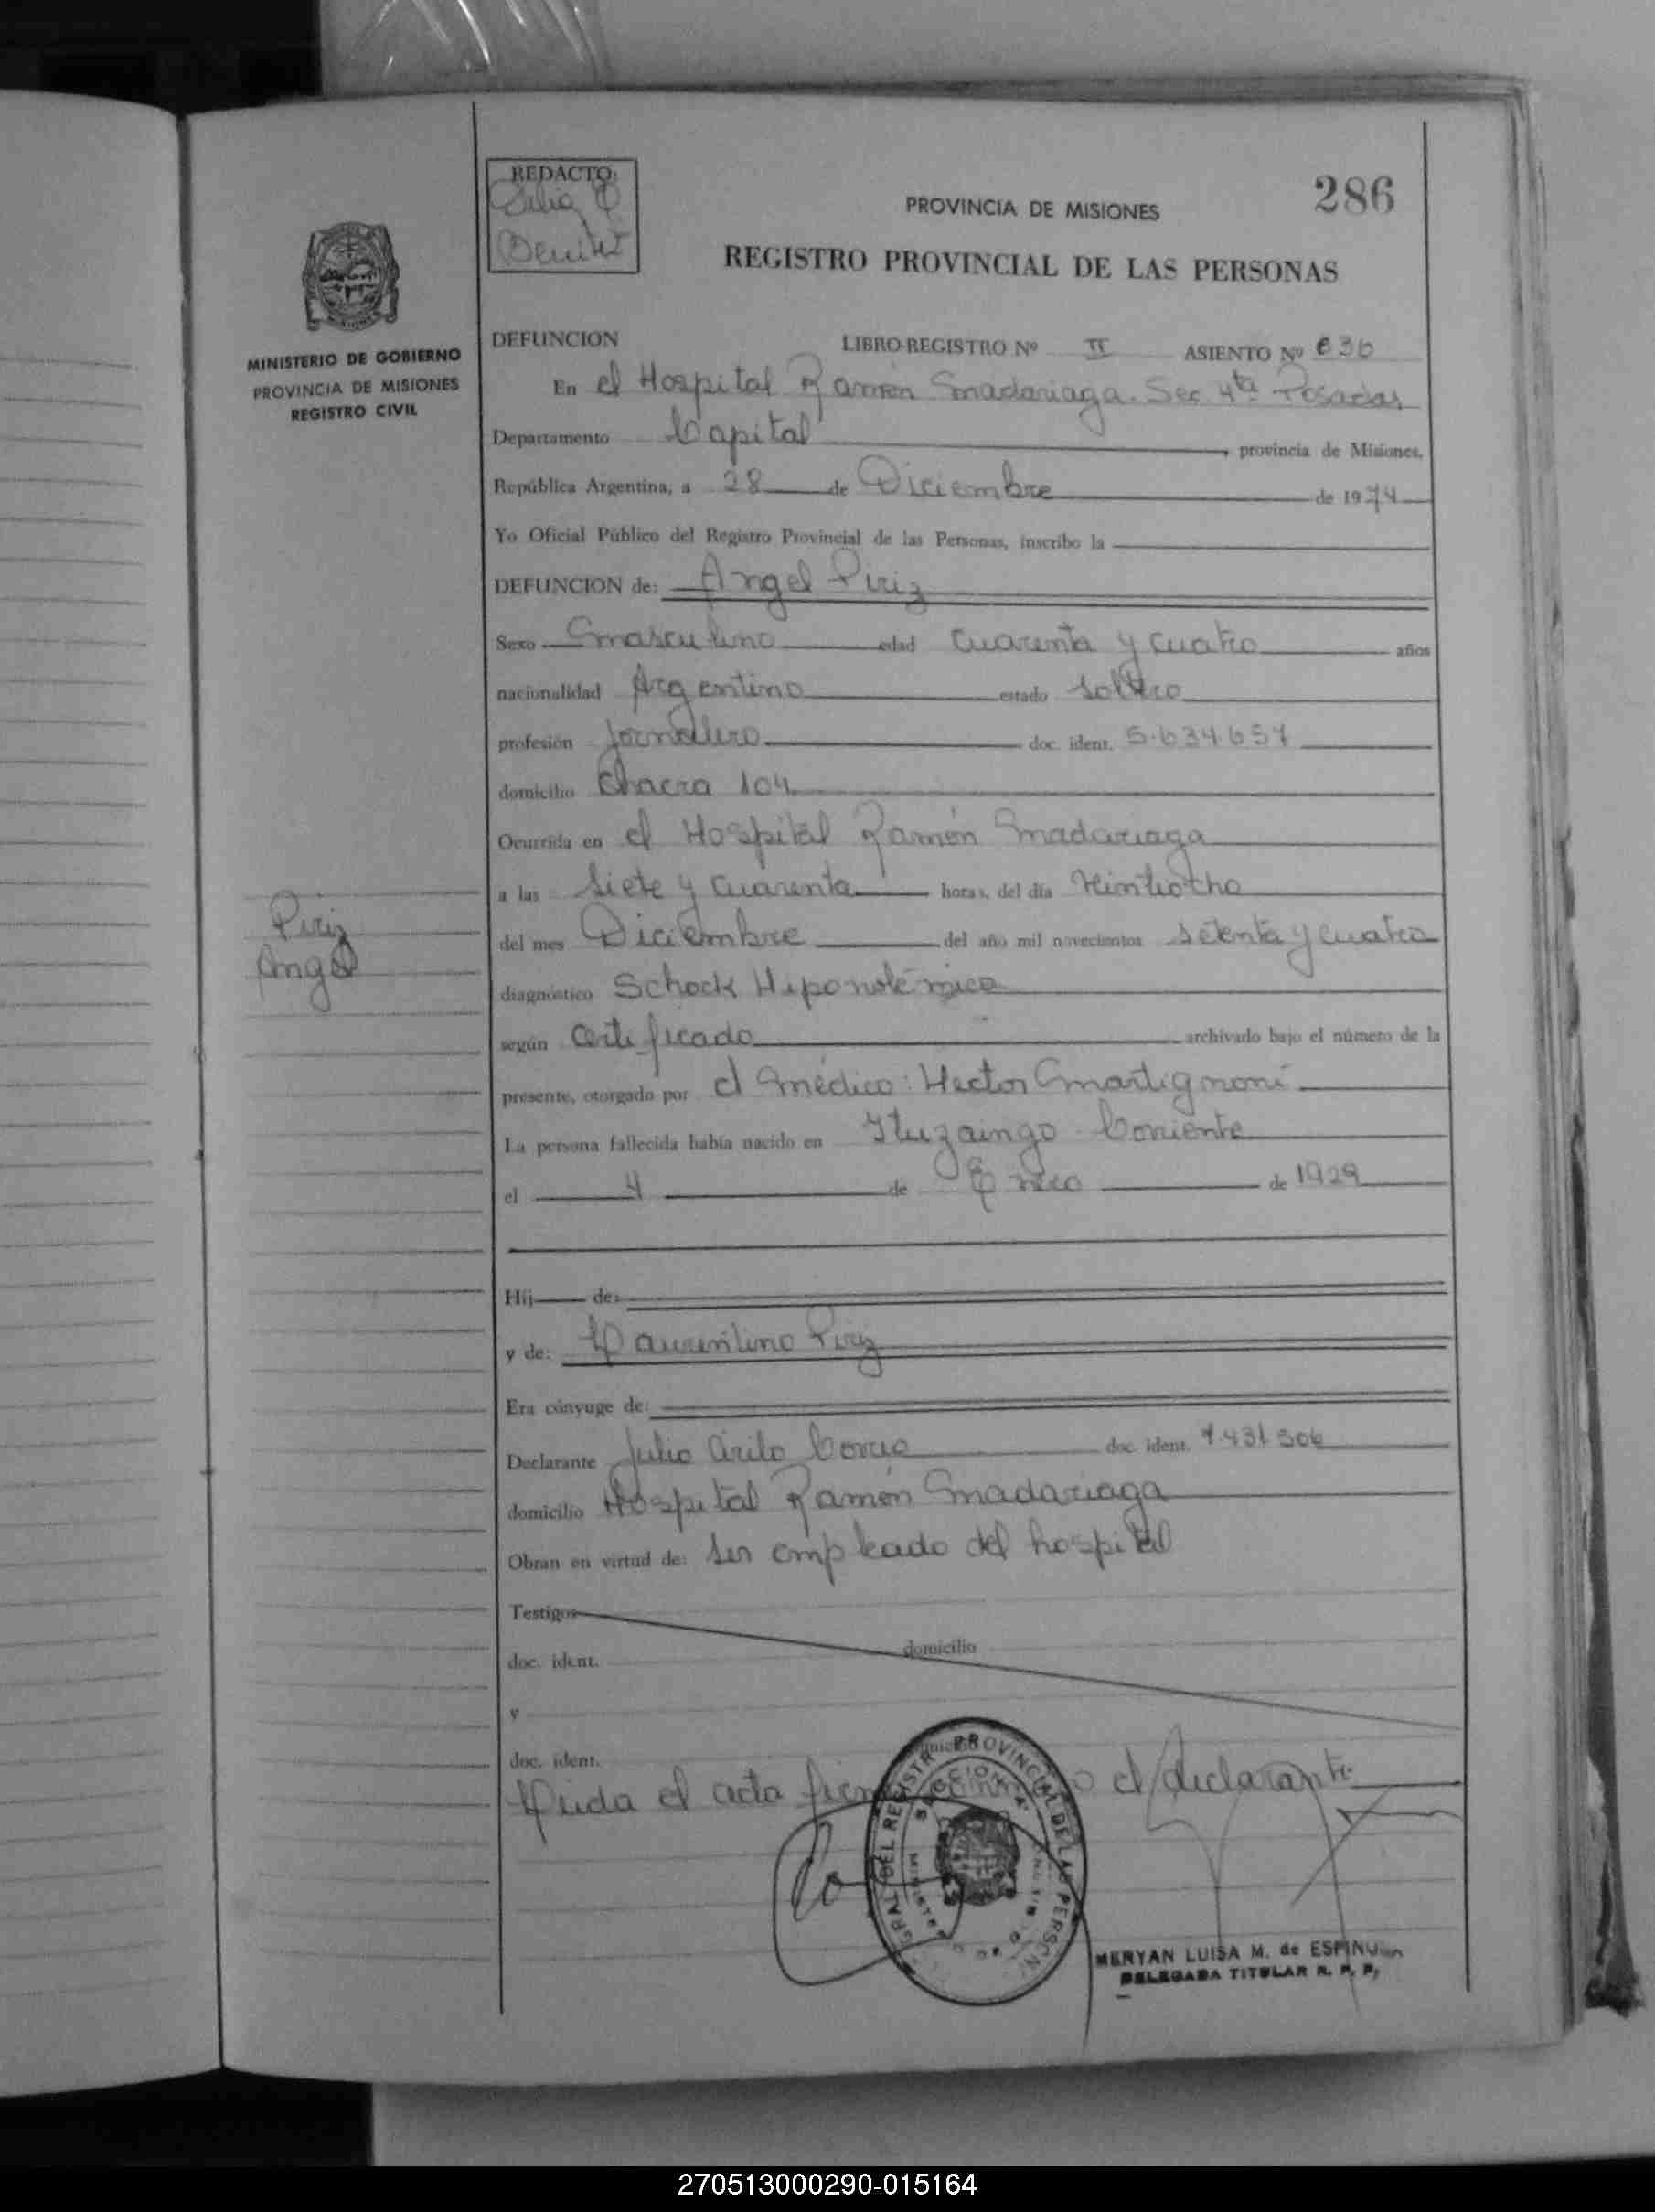 REDACTO:
Benitez
286
PROVINCIA DE MISIONES
REGISTRO PROVINCIAL DE LAS PERSONAS
MINISTERIO DE GOBIERNO
PROVINCIA DE MISIONES
REGISTRO CIVIL
DEFUNCION LIBRO-REGISTRO Nº II ASIENTO Nº 636
En el Hospital Ramón Madariaga. Sec. 4ta Posadas
Departamento Capital, provincia de Misiones,
República Argentina, a 28 de Diciembre de 1974
Yo Oficial Público del Registro Provincial de las Personas, inscribo la
DEFUNCION de: Angel Piriz
Sexo Masculino edad Cuarenta y cuatro años
nacionalidad Argentino estado soltero
profesión Jornalero doc. ident. 5.634.657
domicilio Chacra 104
Ocurrida en el Hospital Ramón Madariaga
a las Siete y Cuarenta horas, del día Veintiocho
del mes Diciembre del año mil novecientos setenta y cuatro
diagnóstico Schock Hipovolémico
según Certificado archivado bajo el número de la
presente, otorgado por el Médico: Hector Martignoni
La persona fallecida había nacido en Ituzaingo Corriente
el 4 de Enero de 1929
Hij de:
y de: Laurentino Piriz
Era cónyuge de:
Declarante Julio Cirilo doc. ident. 7.431.506
domicilio Hospital Ramón Madariaga
Obran en virtud de: ser empleado del hospital
Testigos
doc. ident. domicilio
y
doc. ident.
Leida el acta el declarante
Piriz
Angel
GRAL. DEL REGISTRO PROVINCIAL DE LAS PERSONAS
MERYAN LUISA M. de ESPINOLA
DELEGADA TITULAR R. P. P.
270513000290-015164